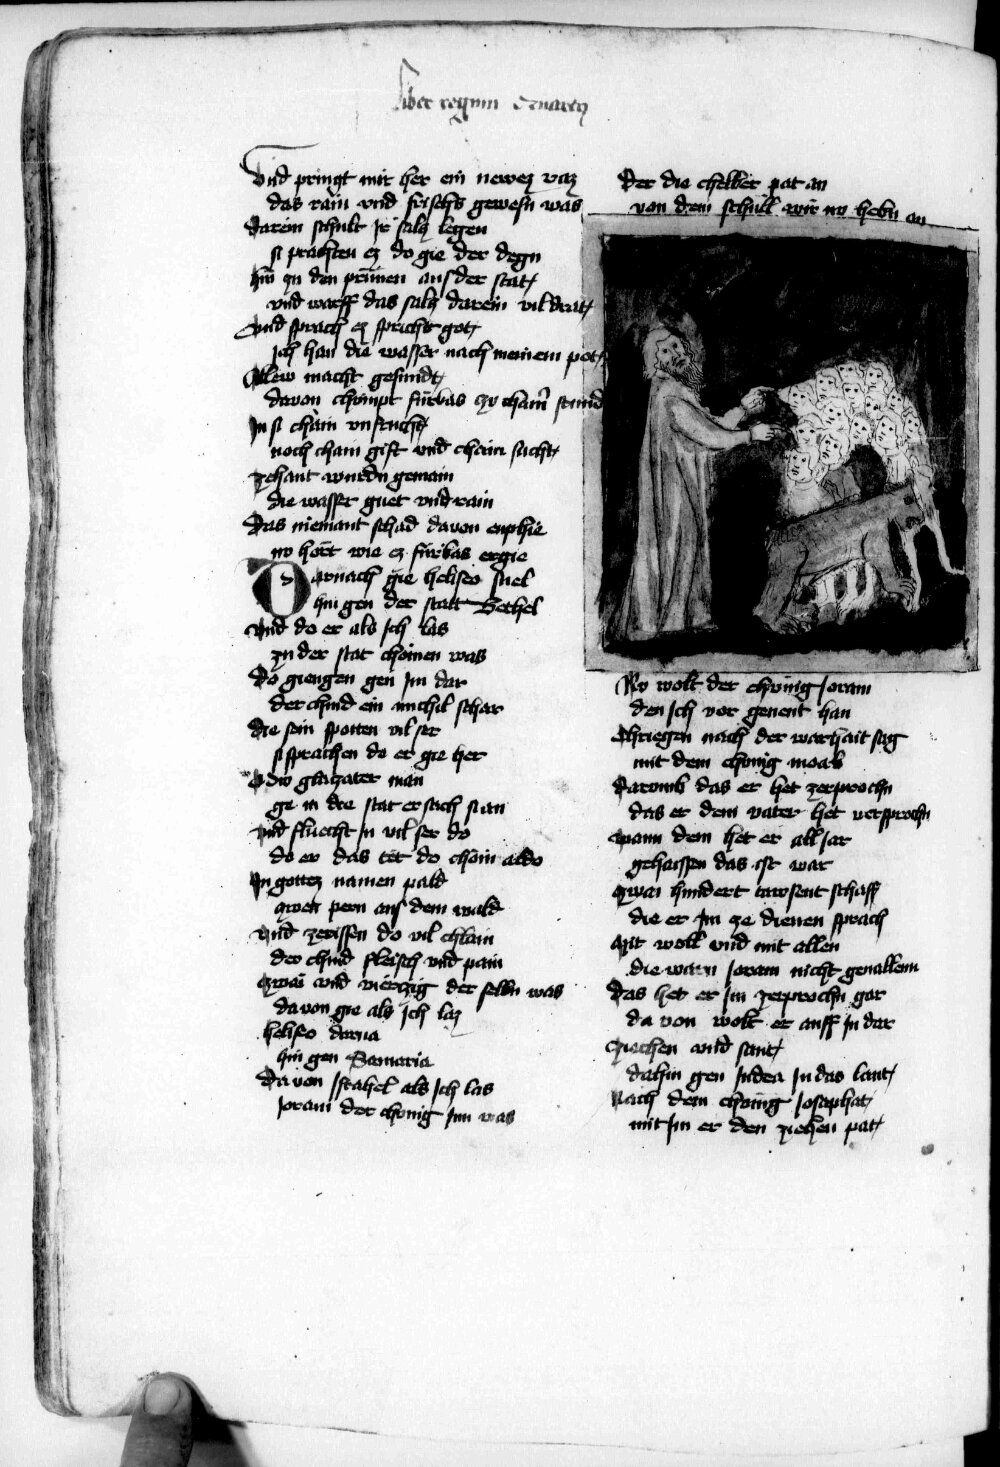 liber regum quartus
Vnd pringt mir her ein newez vaz
das rain vnd frisch gewesn was
darein schult ir salcz legen
si prachten ez do gie der degn
hin zu den prunnen aus der stat
vnd warff das salcz darein vil drat
Vnd sprach ez spricht got
Ich han die wasser nach meinem pot
Allew macht gesundt
davon chumpt fürbas zu chain stund
In si chain vnfrucht
noch chain gift vnd chain sucht
zehant wurdn gemain
die wasser guet vnd rain
Das niemant schad davon enphie
nv hört wie ez fürbas ergie
Darnach gie heliseo snel
hin gen der statt Bethel
vnd do er als ich las
zu der stat chömen was
do giengen gen im dar
der chind ein michil schar
die sein spotten vil ser
si sprachen do er gie her
O dw glaczater man
ge in die stat er sach si an
vnd fluecht in vil ser do
do er das tet do chom aldo
In gottez namen pald
zwen pern aus dem wald
vnd zerissen do vil chlain
der chind fleisch vnd pain
zwai vnd vierczig der selbn was
davon gie als ich laz
heliseo darna
hin gen Samaria
Da von Israhel als ich las
Joram der chönig inn was
Der die chelber pat an
von dem schüll wir nv hebn an
Nv wolt der chönig Joram
den ich vor genent han
Chriegen nach der warhait sag
mit dem chönig moab
darumb das er het zerprochn
das er dem vater het versprochn
wann dem het er all Jar
gehaissen das ist war
zwai hundert tawsent schaff
die er im ze dienen sprach
Mit woll vnd mit allen
die warn Joram nicht geuallen
Das het er im zerprochn gar
da von wolt er auff in dar
Ziechen vnd sant
dahin gen Judea in das lant
Nach dem chönig Josaphat
mit im er den ziehen pat